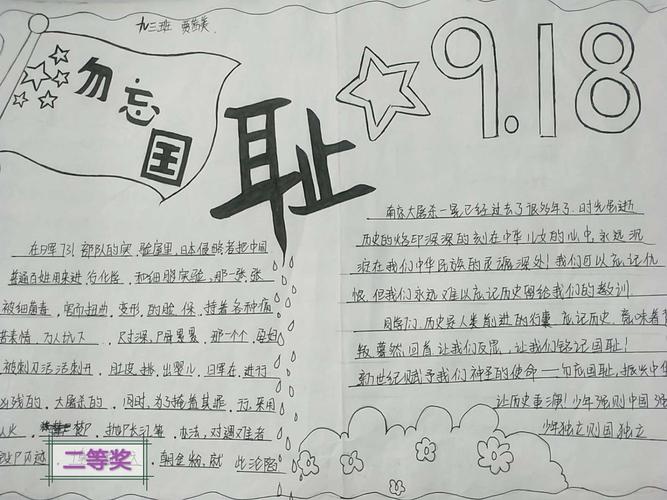 九三班
勿忘国
耻
9.18
在日军731部队的实验房里,日本侵略者把中国
普通百姓用来进行化学,和细胞实验,那一张张
被细菌毒,害而扭曲,变形,的脸保,持着各种痛
苦表情,万人坑下,尺寸深,尸骨累累,那一个个,孕妇
被刺刀活活制开,肚皮,挑,出婴儿,日军在,进行
凶残的,大屠杀的,同时,为了掩盖其罪,行,采用
办法,对遇难者
此沦陷
二等奖
南京大屠杀一晃已经过去了很多年了.时光虽逝
历史的烙印深深的刻在中华儿女的心中,永远沉
淀在我们中华民族的灵魂深处!我们可以忘记仇
恨,但我们永远难以忘记历史留给我们的教训.
同学们,历史是人类前进的行囊,忘记历史,意味着背
叛,蓦然,回首,让我们反思,让我们铭记国耻!
新世纪赋予我们神圣的使命——勿忘国耻,振兴中华
让历史重演!少年强则中国强
少年独立则国独立